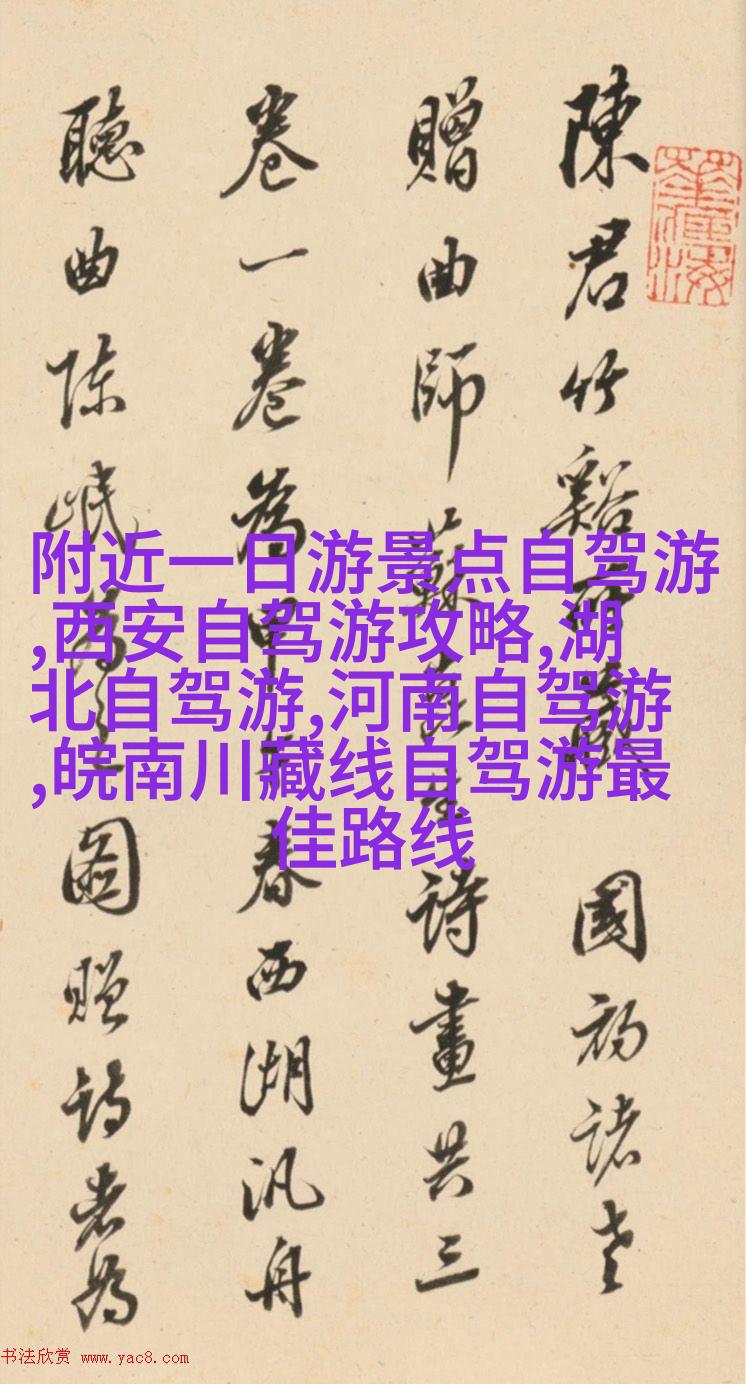 陳君竹谿所藏 國初諸老
贈曲師蘇崑生詩畫共三
卷一卷為甲春西湖汎舟
聽曲陳岷為之圖贈詩者為
附近一日游景点自驾游
,西安自驾游攻略,湖
北自驾游,河南自驾游
,皖南川藏线自驾游最
佳路线
书法欣赏 www.yac8.com